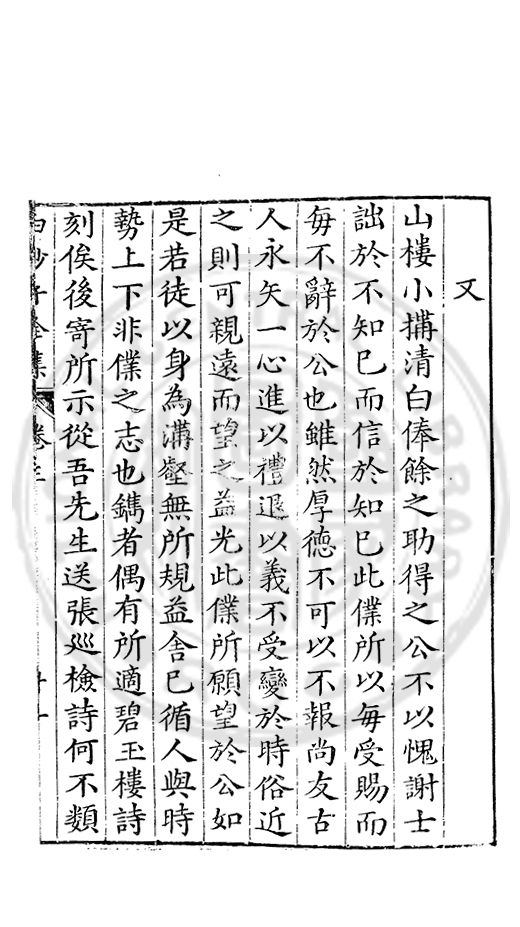 又
山樓小搆清白俸餘之助得之公不以愧謝士
詘於不知已而信於知已此僕所以每受賜而
每不辭於公也雖然厚德不可以不報尚友古
人永矢一心進以禮退以義不受變於時俗近
之則可親遠而望之益光此僕所願望於公如
是若徒以身為溝壑無所規益舍已循人與時
勢上下非僕之志也鐫者偶有所適碧玉樓詩
刻俟後寄所示從吾先生送張巡檢詩何不類
白沙子全集 卷之